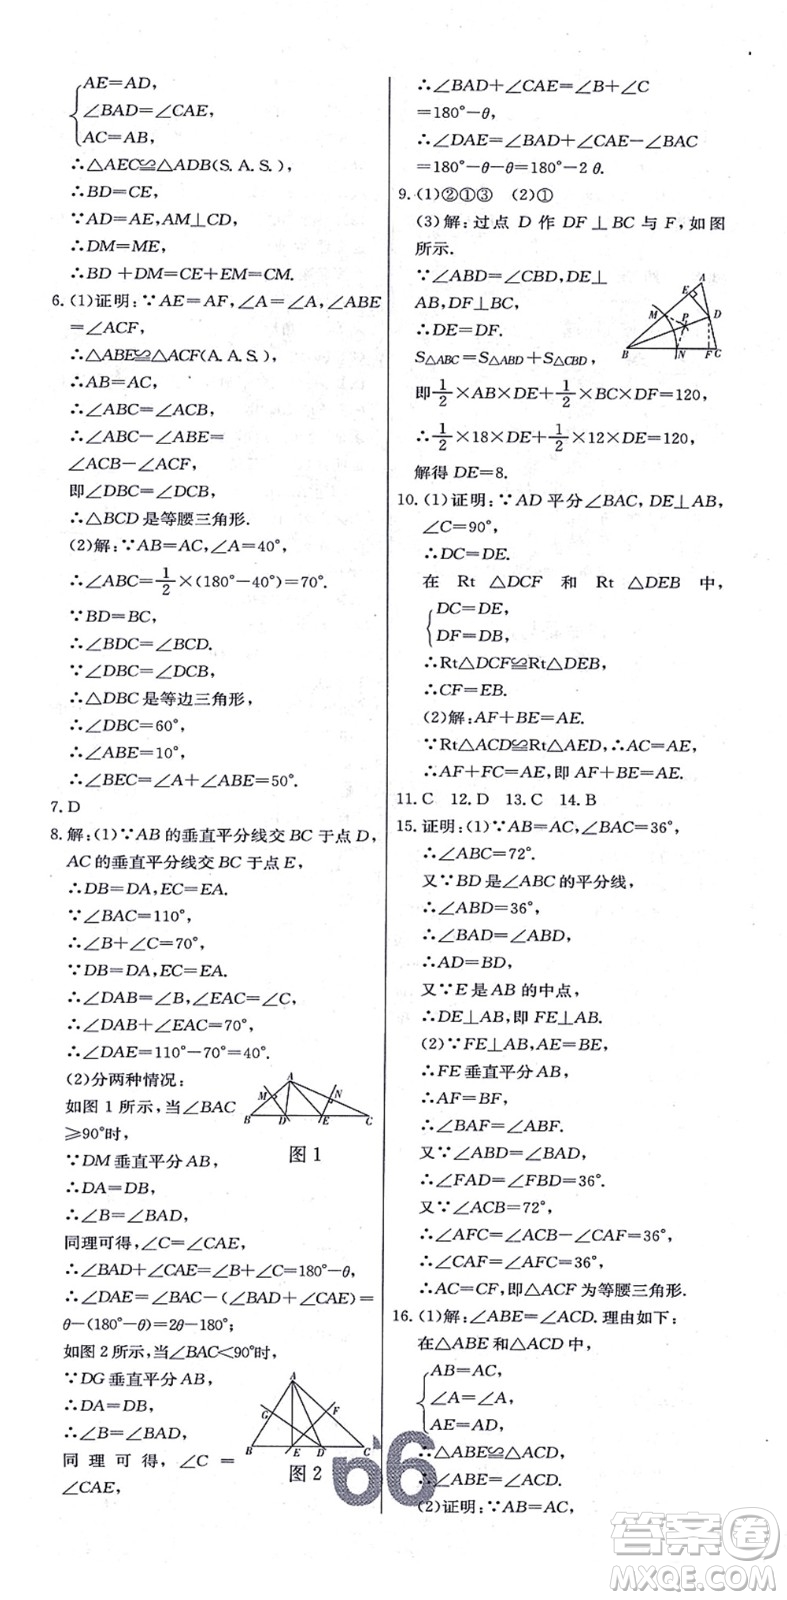 AE=AD,
∠BAD=∠CAE,
AC=AB,
∴△AEC≌△ADB(S.A.S.),
∴BD=CE,
∵AD=AE,AM⊥CD,
∴DM=ME,
∴BD+DM=CE+EM=CM.
6.(1)证明:∵AE=AF,∠A=∠A,∠ABE
=∠ACF,
∴△ABE≌△ACF(A.A.S.),
∴AB=AC,
∴∠ABC=∠ACB,
∴∠ABC-∠ABE=
∠ACB-∠ACF,
即∠DBC=∠DCB,
∴△BCD是等腰三角形.
(2)解:∵AB=AC,∠A=40°,
∴∠ABC=1/2×(180°-40°)=70°.
∵BD=BC,
∴∠BDC=∠BCD.
∵∠DBC=∠DCB,
∴△DBC是等边三角形,
∴∠DBC=60°,
∴∠ABE=10°,
∴∠BEC=∠A+∠ABE=50°.
7.D
8.解:(1)∵AB的垂直平分线交BC于点D,
AC的垂直平分线交BC于点E,
∴DB=DA,EC=EA.
∵∠BAC=110°,
∴∠B+∠C=70°,
∵DB=DA,EC=EA.
∴∠DAB=∠B,∠EAC=∠C,
∴∠DAB+∠EAC=70°,
∴∠DAE=110°-70°=40°.
(2)分两种情况:
如图1所示,当∠BAC
≥90°时,
∵DM垂直平分AB,
∴DA=DB,
∴∠B=∠BAD,
同理可得,∠C=∠CAE,
∴∠BAD+∠CAE=∠B+∠C=180°-θ,
∴∠DAE=∠BAC-(∠BAD+∠CAE)=
θ-(180°-θ)=2θ-180°;
如图2所示,当∠BAC<90°时,
∵DG垂直平分AB,
∴DA=DB,
∴∠B=∠BAD,
同理可得,∠C=
∠CAE,
A
M
N
B
D
E
C
图1
A
G
F
B
E
D
C
图2
∴∠BAD+∠CAE=∠B+∠C
=180°-θ,
∴∠DAE=∠BAD+∠CAE-∠BAC
=180°-θ-θ=180°-2θ.
9.(1)②①③ (2)①
(3)解:过点D作DF⊥BC与F,如图
所示.
∵∠ABD=∠CBD,DE⊥
AB,DF⊥BC,
∴DE=DF.
S△ABC=S△ABD+S△CBD,
A
E
M
P
D
B
N
F
C
即1/2×AB×DE+1/2×BC×DF=120,
∴1/2×18×DE+1/2×12×DE=120,
解得DE=8.
10.(1)证明:∵AD平分∠BAC,DE⊥AB,
∠C=90°,
∴DC=DE.
在Rt△DCF和Rt△DEB中,
DC=DE,
DF=DB,
∴Rt△DCF≌Rt△DEB,
∴CF=EB.
(2)解:AF+BE=AE.
∵Rt△ACD≌Rt△AED,∴AC=AE,
∴AF+FC=AE,即AF+BE=AE.
11.C 12.D 13.C 14.B
15.证明:(1)∵AB=AC,∠BAC=36°,
∴∠ABC=72°.
又∵BD是∠ABC的平分线,
∴∠ABD=36°,
∴∠BAD=∠ABD,
∴AD=BD,
又∵E是AB的中点,
∴DE⊥AB,即FE⊥AB.
(2)∵FE⊥AB,AE=BE,
∴FE垂直平分AB,
∴AF=BF,
∴∠BAF=∠ABF.
又∵∠ABD=∠BAD,
∴∠FAD=∠FBD=36°.
又∵∠ACB=72°,
∴∠AFC=∠ACB-∠CAF=36°,
∴∠CAF=∠AFC=36°,
∴AC=CF,即△ACF为等腰三角形.
16.(1)解:∠ABE=∠ACD.理由如下:
在△ABE和△ACD中,
AB=AC,
∠A=∠A,
AE=AD,
∴△ABE≌△ACD,
∴∠ABE=∠ACD.
(2)证明:∵AB=AC,
答案圈
MXQE.COM